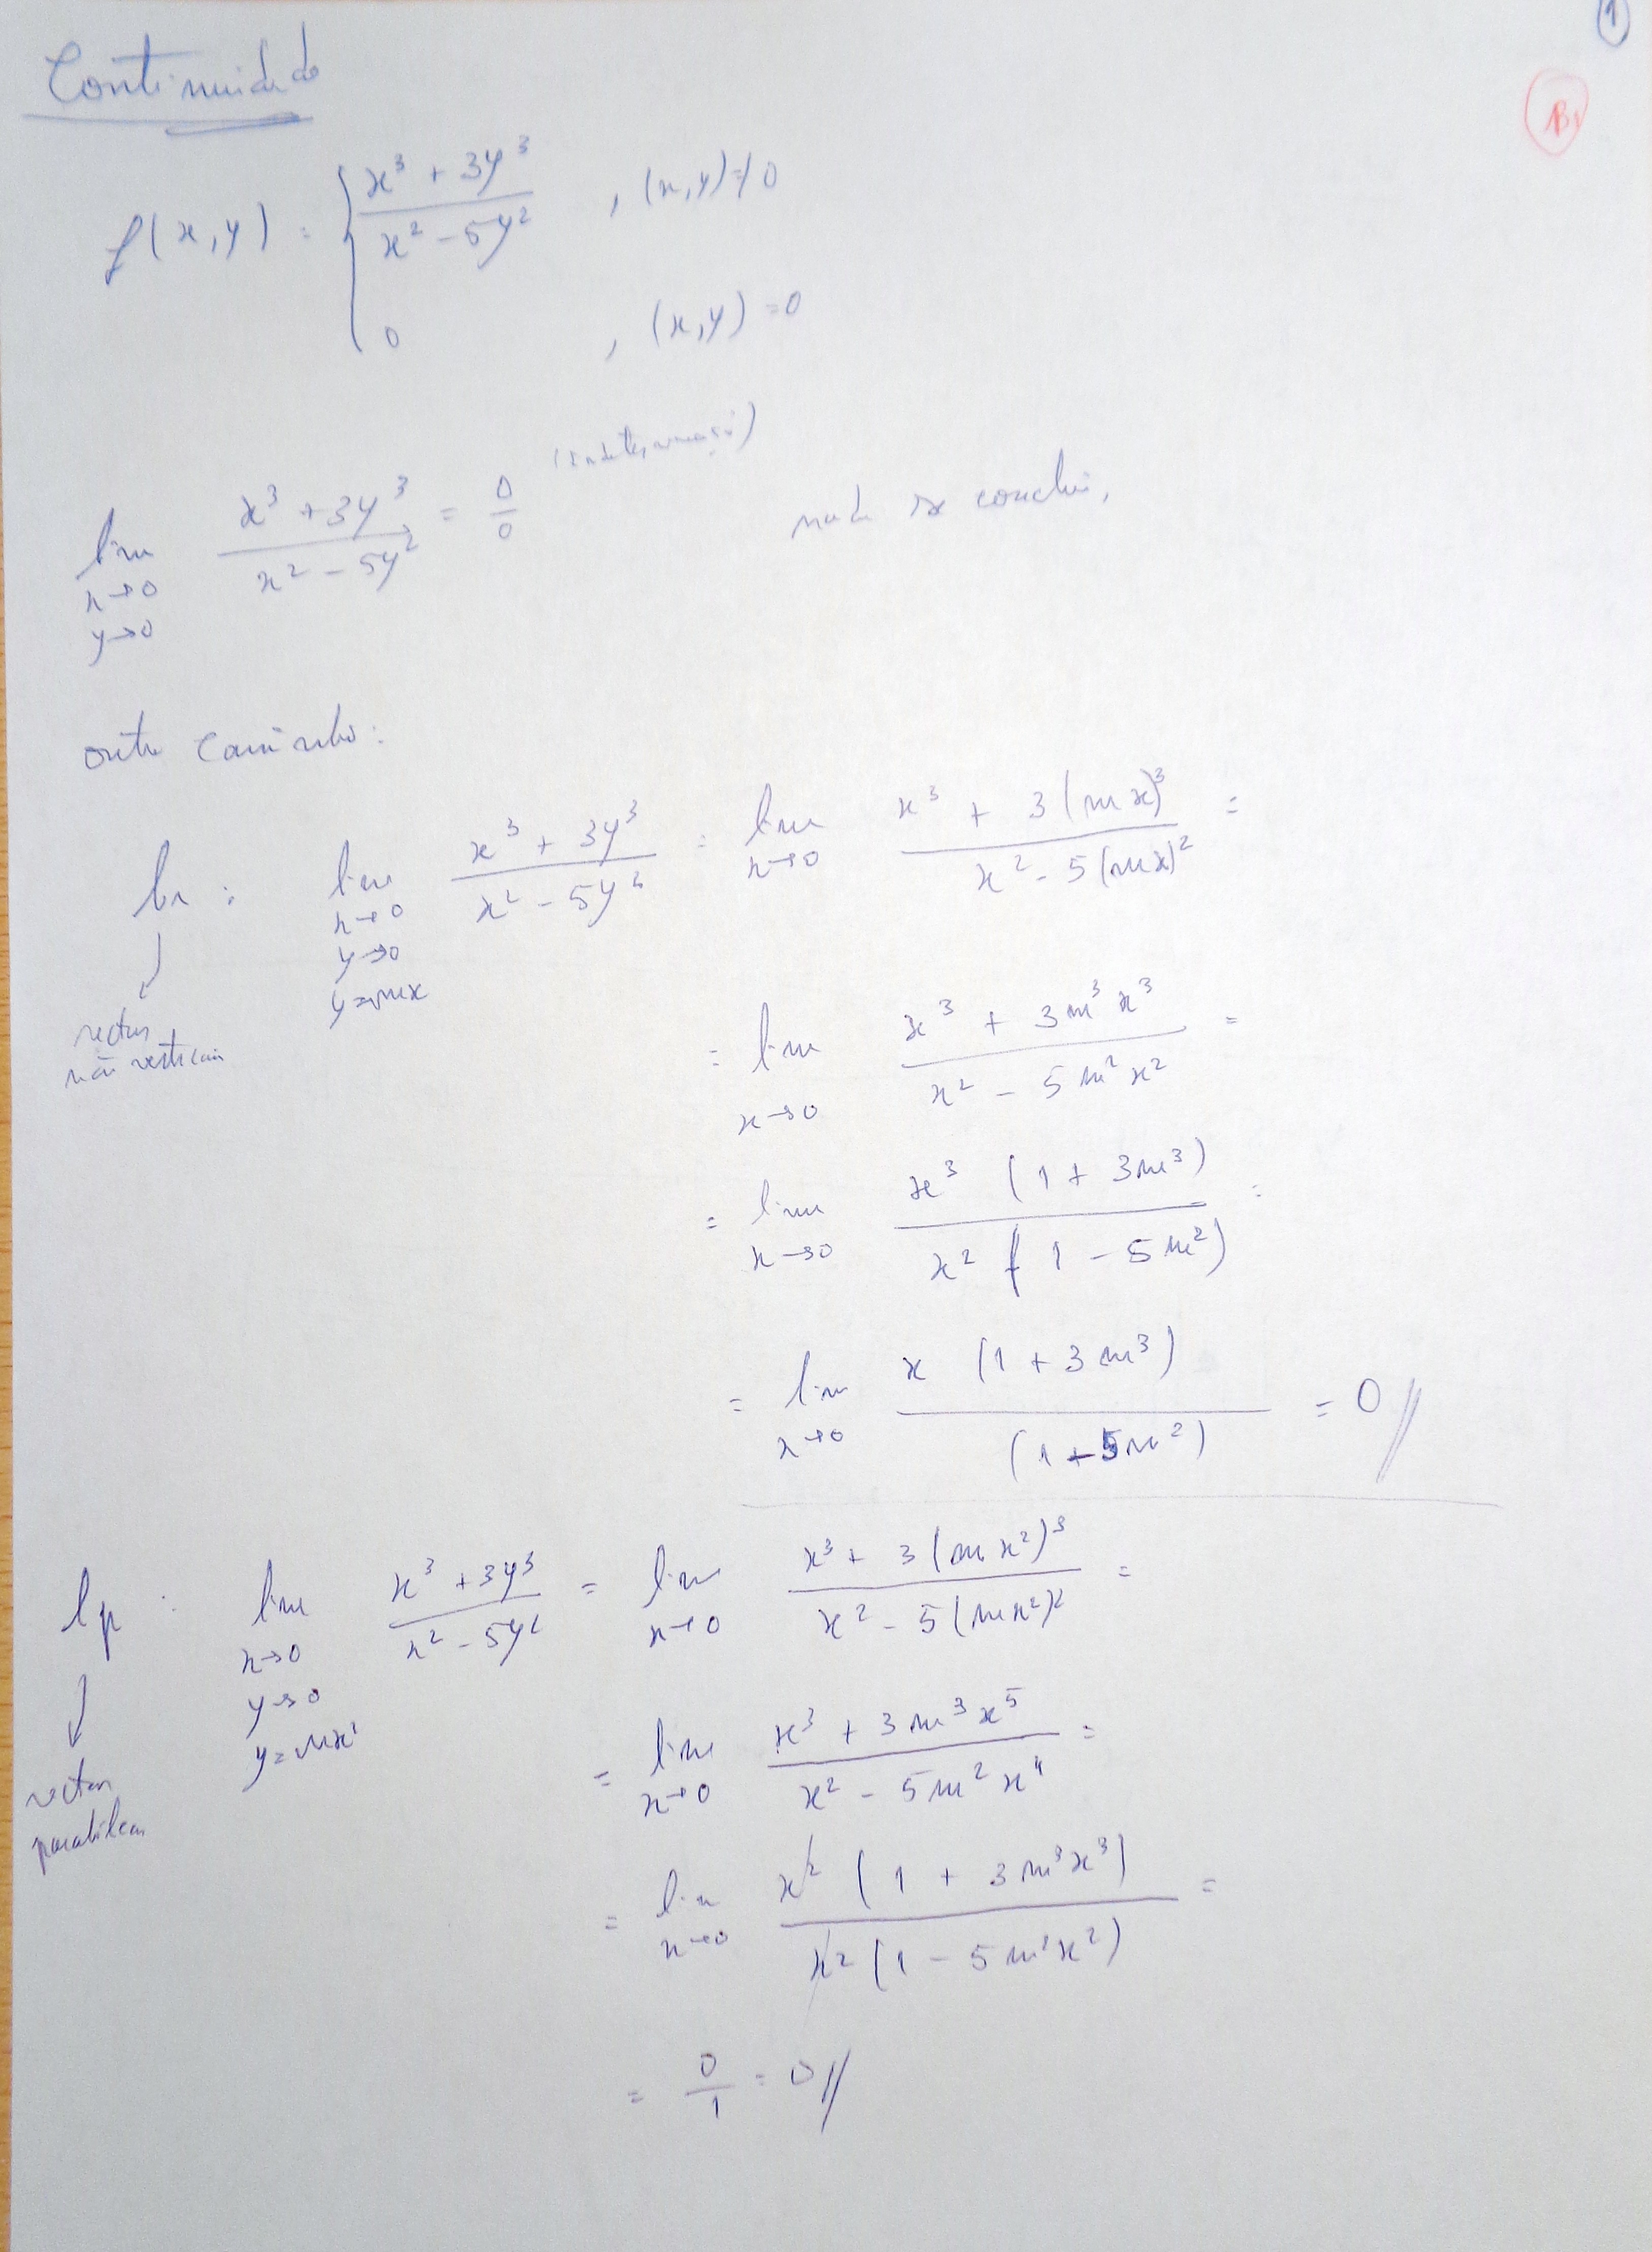 1
Continuidade
f(x,y) = { x³ + 3y³ / x² - 5y² , (x,y) ≠ 0
0 , (x,y) = 0
lim x→0 y→0 x³ + 3y³ / x² - 5y² = 0/0 (indeterminação) nada se conclui,
outro caminho:
lr : lim x→0 y→0 y=mx x³ + 3y³ / x² - 5y² = lim x→0 x³ + 3(mx)³ / x² - 5(mx)² =
rectas não verticais
= lim x→0 x³ + 3m³x³ / x² - 5m²x² =
= lim x→0 x³ (1 + 3m³) / x² (1 - 5m²) =
= lim x→0 x (1 + 3m³) / (1 - 5m²) = 0 //
lp : lim x→0 y→0 y=mx² x³ + 3y³ / x² - 5y² = lim x→0 x³ + 3(mx²)³ / x² - 5(mx²)² =
rectas parabólicas
= lim x→0 x³ + 3m³x⁵ / x² - 5m²x⁴ =
= lim x→0 x² (1 + 3m³x³) / x² (1 - 5m²x²) =
= 0/1 = 0 //